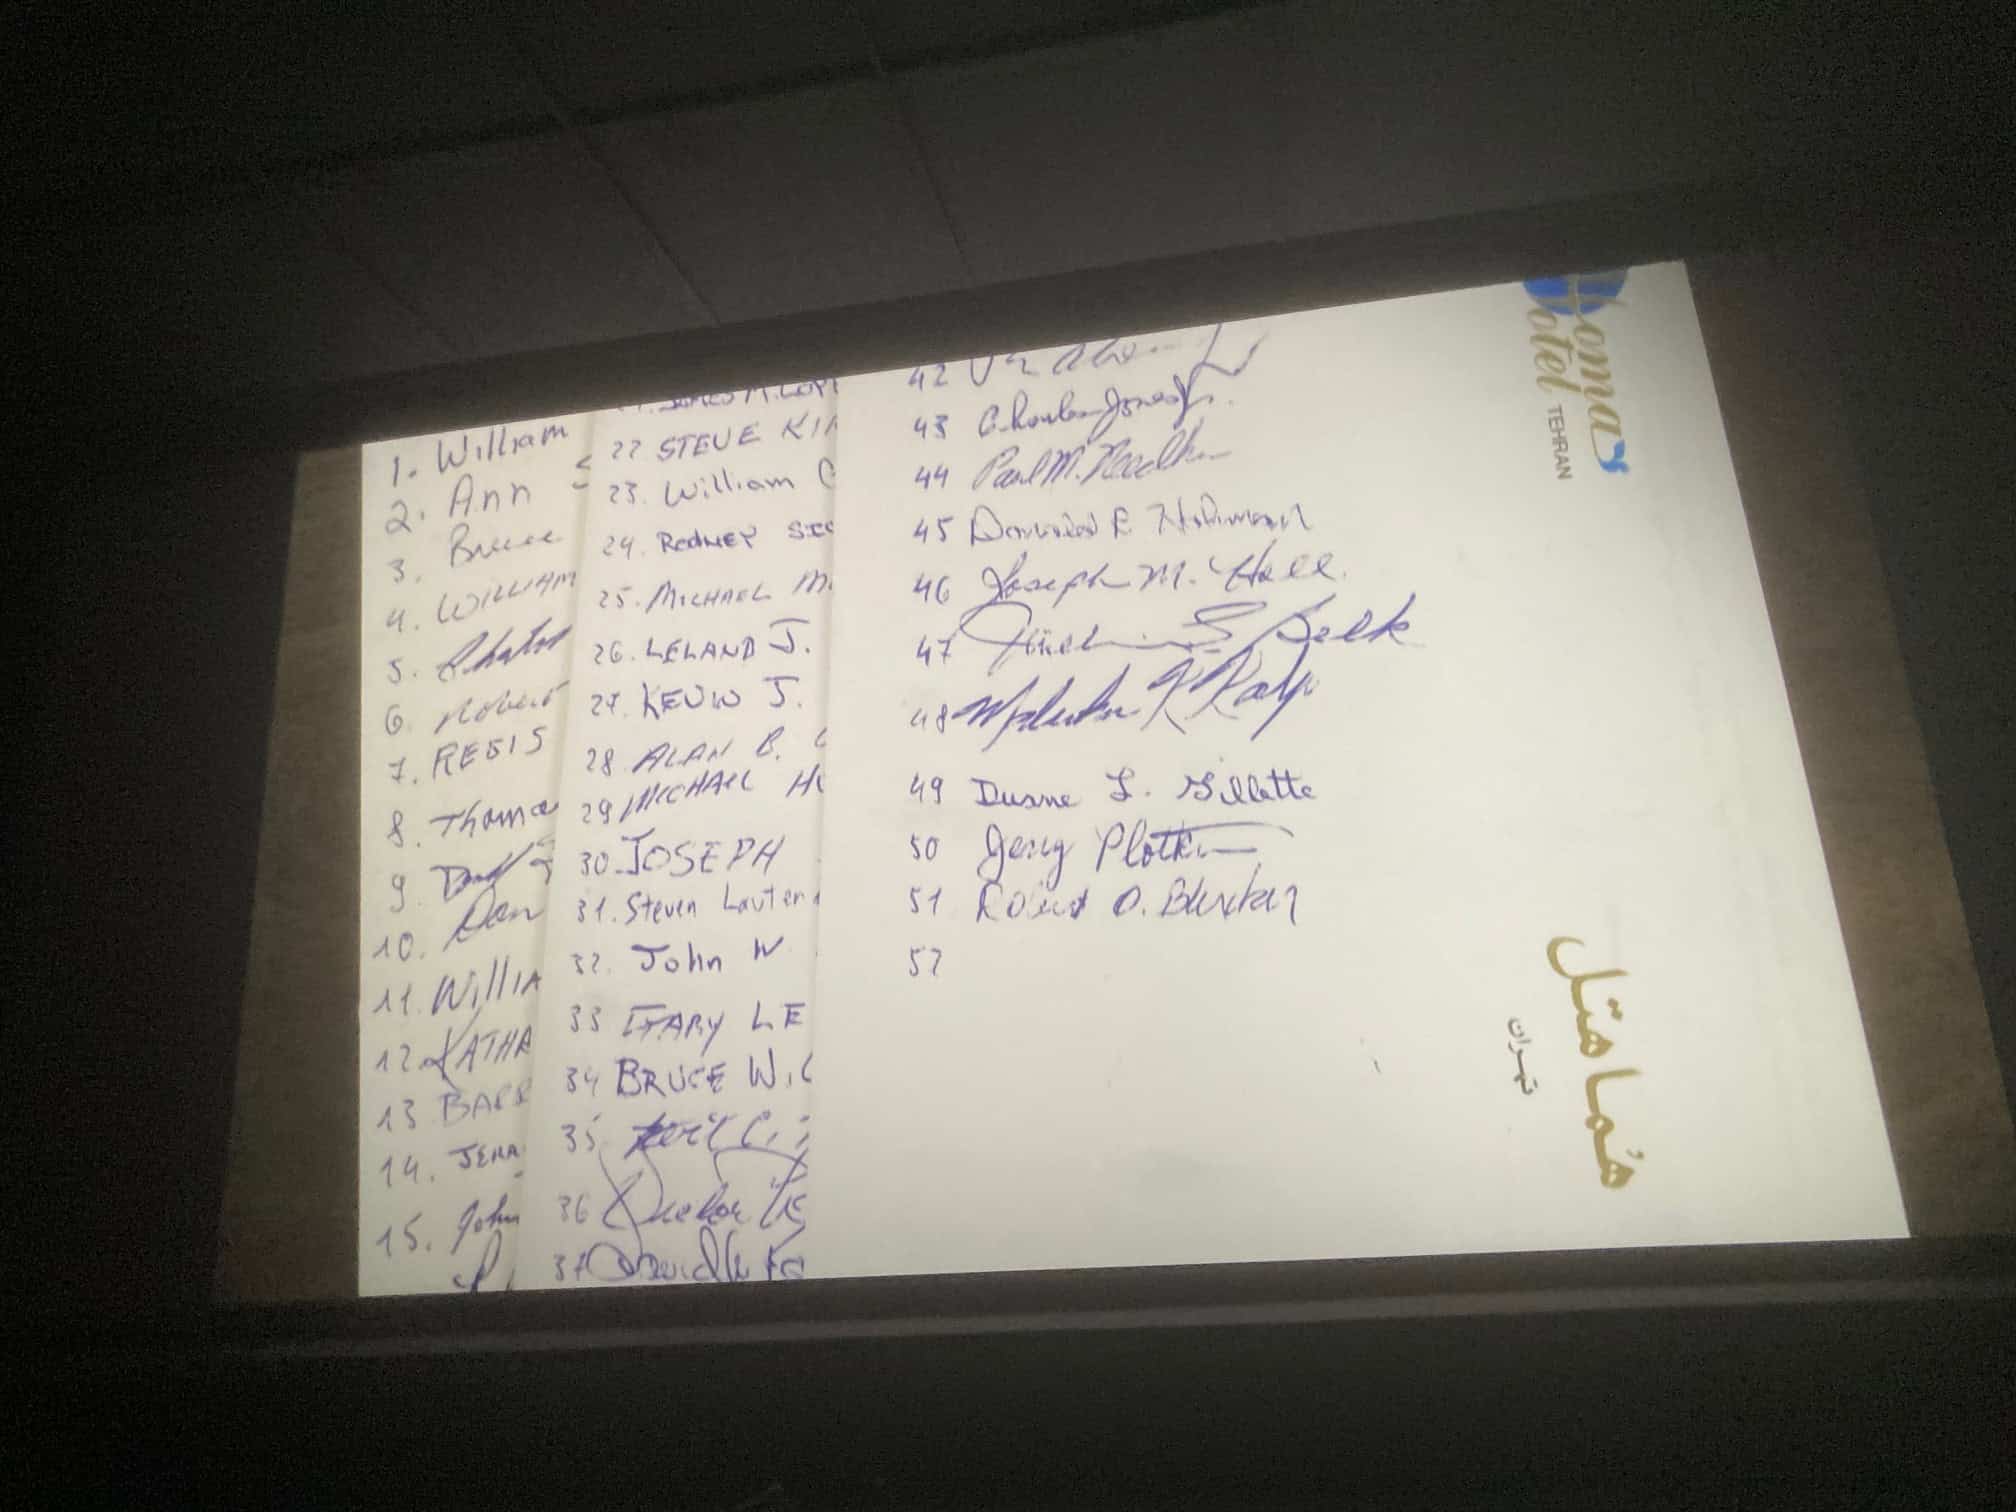 1. William
2. Ann S
3. Bruce
4. WILLIAM
5.
6. Robert
7. REGIS
8. Thomas
9.
10. Don
11. WILLIA
12. KATHA
13 BARB
14. JERR
15. John
JAMES M. LOP
22 STEVE KIR
23. William
24. RODNEY SIC
25. MICHAEL M.
26. LELAND J.
27. KEVIN J.
28 ALAN B.
29 MICHAEL HO
30. JOSEPH
31. Steven Lauten
32. John W.
33 GARY LE
34 BRUCE W.
35
36
37
42
43 Charles Jones Jr.
44 Paul M. Needham
45
46 Joseph M. Hall.
47 Belk
48
49 Duane L. Gillette
50 Jerry Plotkin
51 Robert O. Blucker
52
Homa
Hotel TEHRAN
هُما هتل
تهران